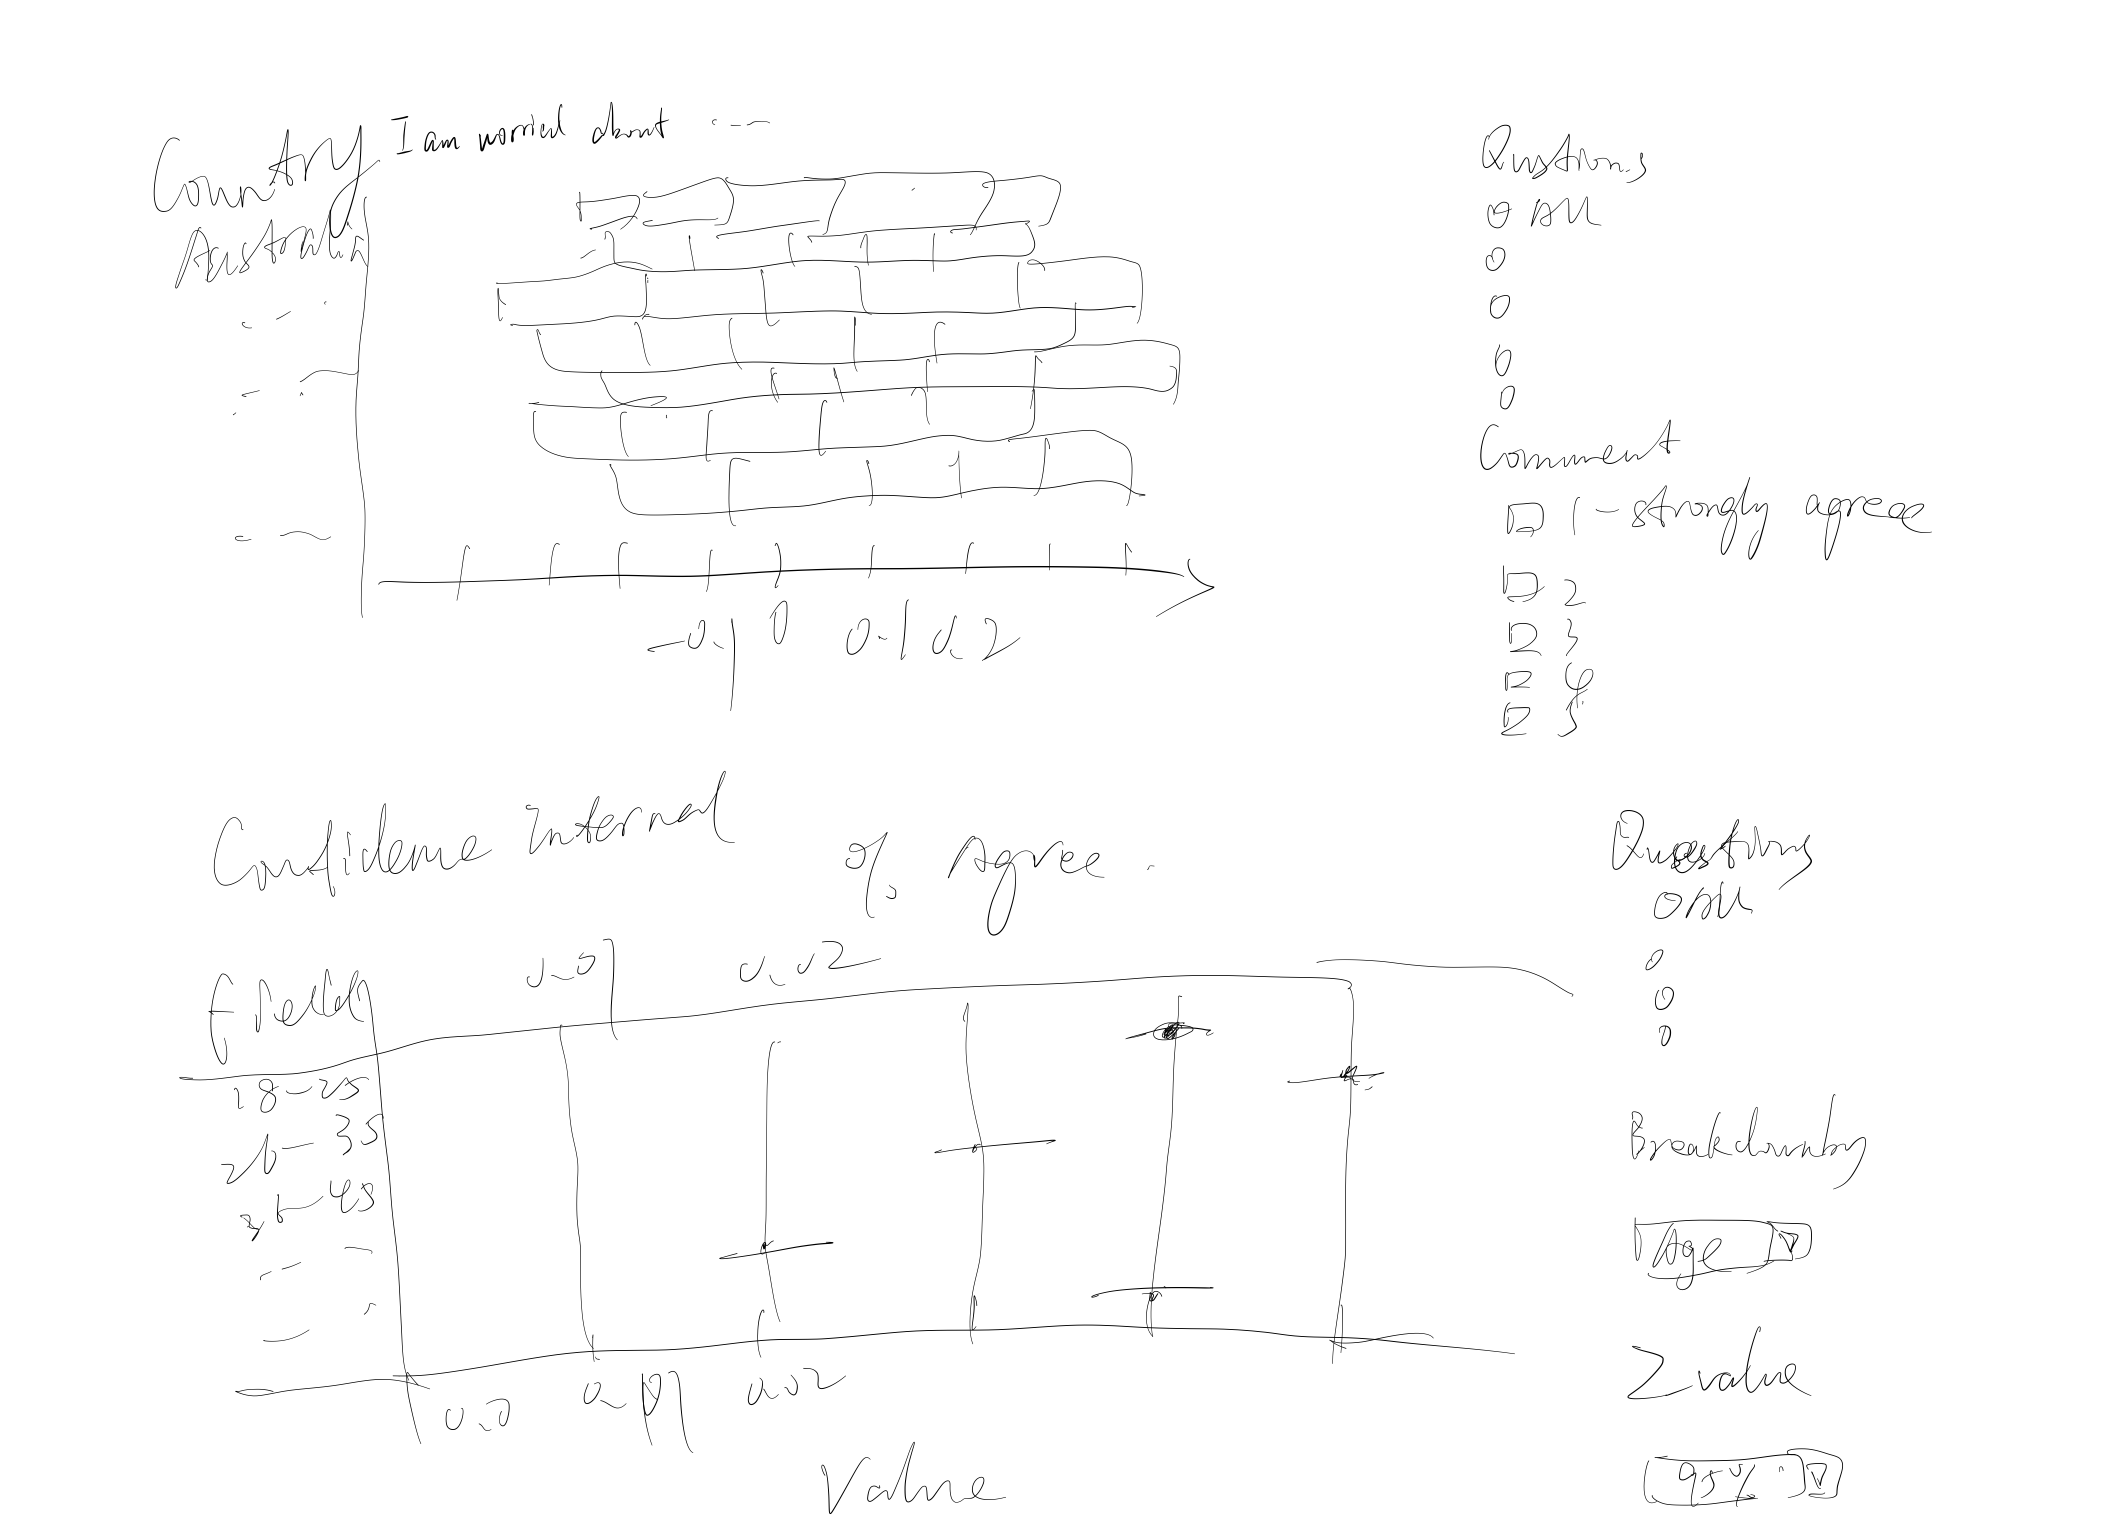 Country
I am worried about ...
Australia
-0.1 0 0.1 0.2
Questions
All
Comment
1 - strongly agreee
2
3
4
5
Confidence Interval
% Agree.
Field
0.01
0.02
18-25
26-35
36-45
0.0
0.01
0.02
Value
Questions
All
Breakdown by
Age
Z value
95%